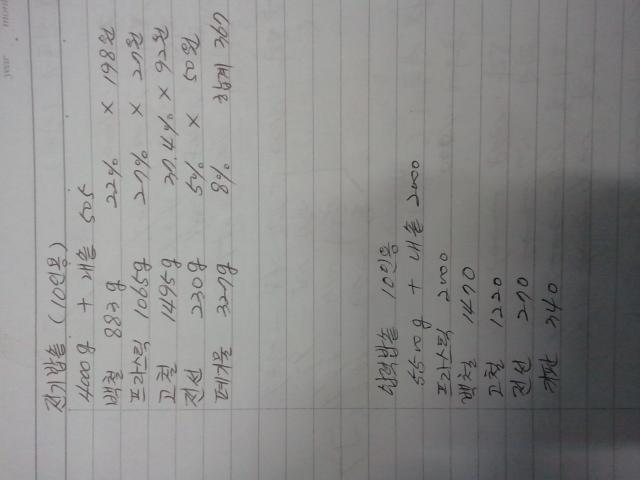 전기밥솥 (10인용)
4000g + 내솥 505
백철 883g 22% × 198원
프라스틱 1065g 27% × 20원
고철 1495g 37.4% × 92원
전선 230g 5% × 50원
폐기물 327g 8%
압력밥솥 10인용
5500g + 내솥 2000
프라스틱 2000
백철 1470
고철 1220
전선 270
기판 340